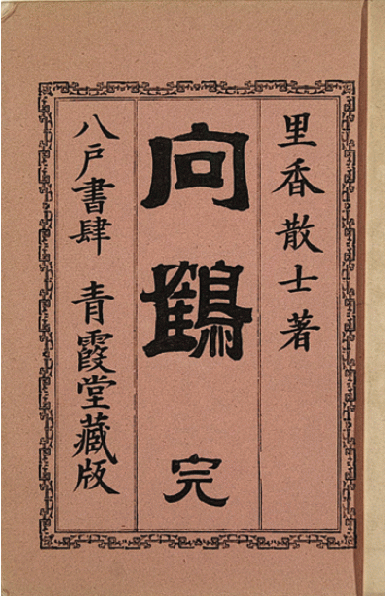 里香散士著
向鶴 完
八戸書肆 青霞堂藏版